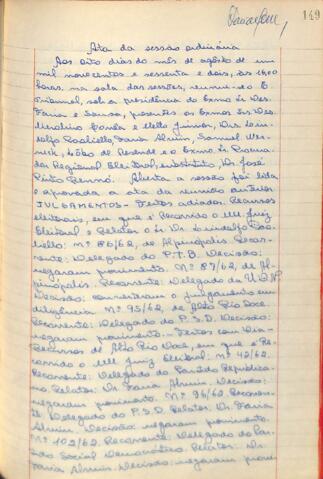 149
Ata da sessão ordinária
Aos oito dias do mês de agôsto de um
mil novecentos e sessenta e dois, às 14,00
horas, na sala das sessões, reuniu-se o
Tribunal, sob a presidência do Exmo Sr. Des.
Faria e Sousa, presentes os Exmos Srs. Des.
Corrêa e Mello Junior, Drs. Lin-
dolfo Paoliello, Faria Alvim, Samuel Wer-
neck, Leão de Resende e o Exmo Sr. Procura-
dor Regional Eleitoral, substituto, Dr. José
Pinto Renno. Aberta a sessão foi lida
e aprovada a ata da reunião anterior
JULGAMENTOS - Feitos adiados. Recursos
eleitorais, em que é Recorrido o M. Juiz
Eleitoral e Relator o Sr. Dr. Lindolfo Pao-
liello: Nº 86/62, de Alpinópolis. Recor-
rente: Delegado do P.T.B. Decisão:
negaram provimento. Nº 87/62, de Al-
pinópolis. Recorrente: Delegado da U.D.N.
Decisão: converteram o julgamento em
diligência. Nº 95/62, de Alto Rio Doce.
Recorrente: Delegado do P.S.D. Decisão:
negaram provimento. - Feitos com Dia-
Recursos de Alto Rio Doce, em que é Re-
corrido o M. Juiz Eleitoral: Nº 42/62.
Recorrente: Delegado do Partido Republica-
no. Relator: Dr. Faria Alvim. Decisão:
negaram provimento. Nº 96/62. Recorren-
te: Delegado do P.S.D. Relator: Dr. Faria
Alvim. Decisão: negaram provimento.
Nº 102/62. Recorrente: Delegado do Par-
tido Social Democrático. Relator: Dr.
Faria Alvim. Decisão: negaram provi